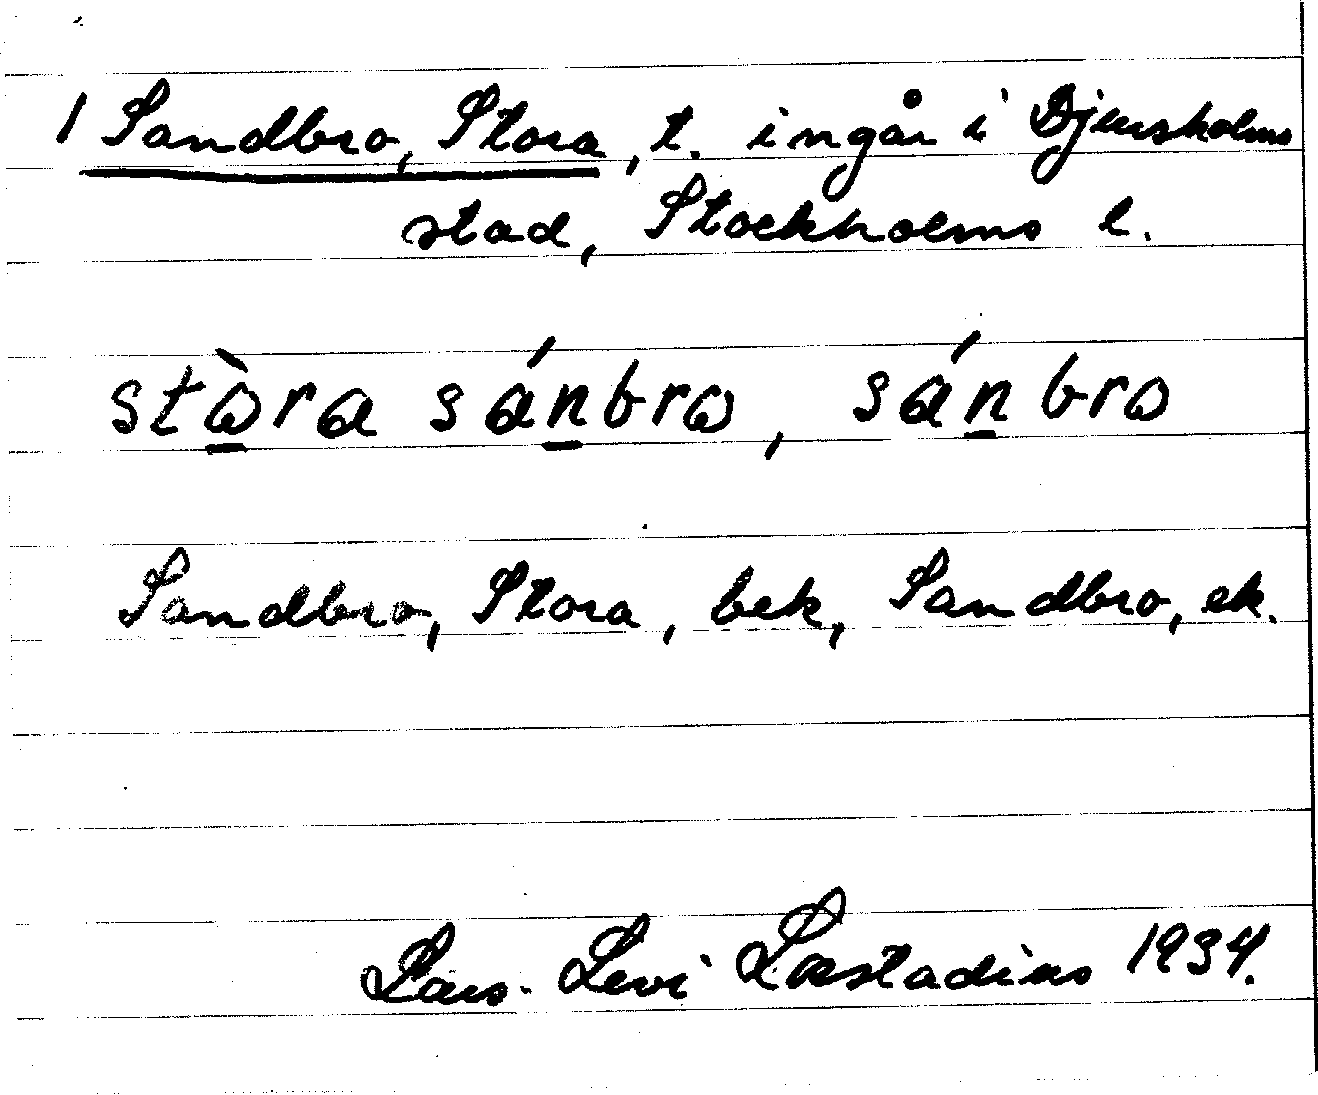 1 Sandbro, Stora, t. ingår i Djursholms
stad, Stockholms l.
stɷ̠̀ra sán̠brɷ, sán̠brɷ
Sandbro, Stora, bek, Sandbro, ek.
Lars-Levi Læstadius 1934.